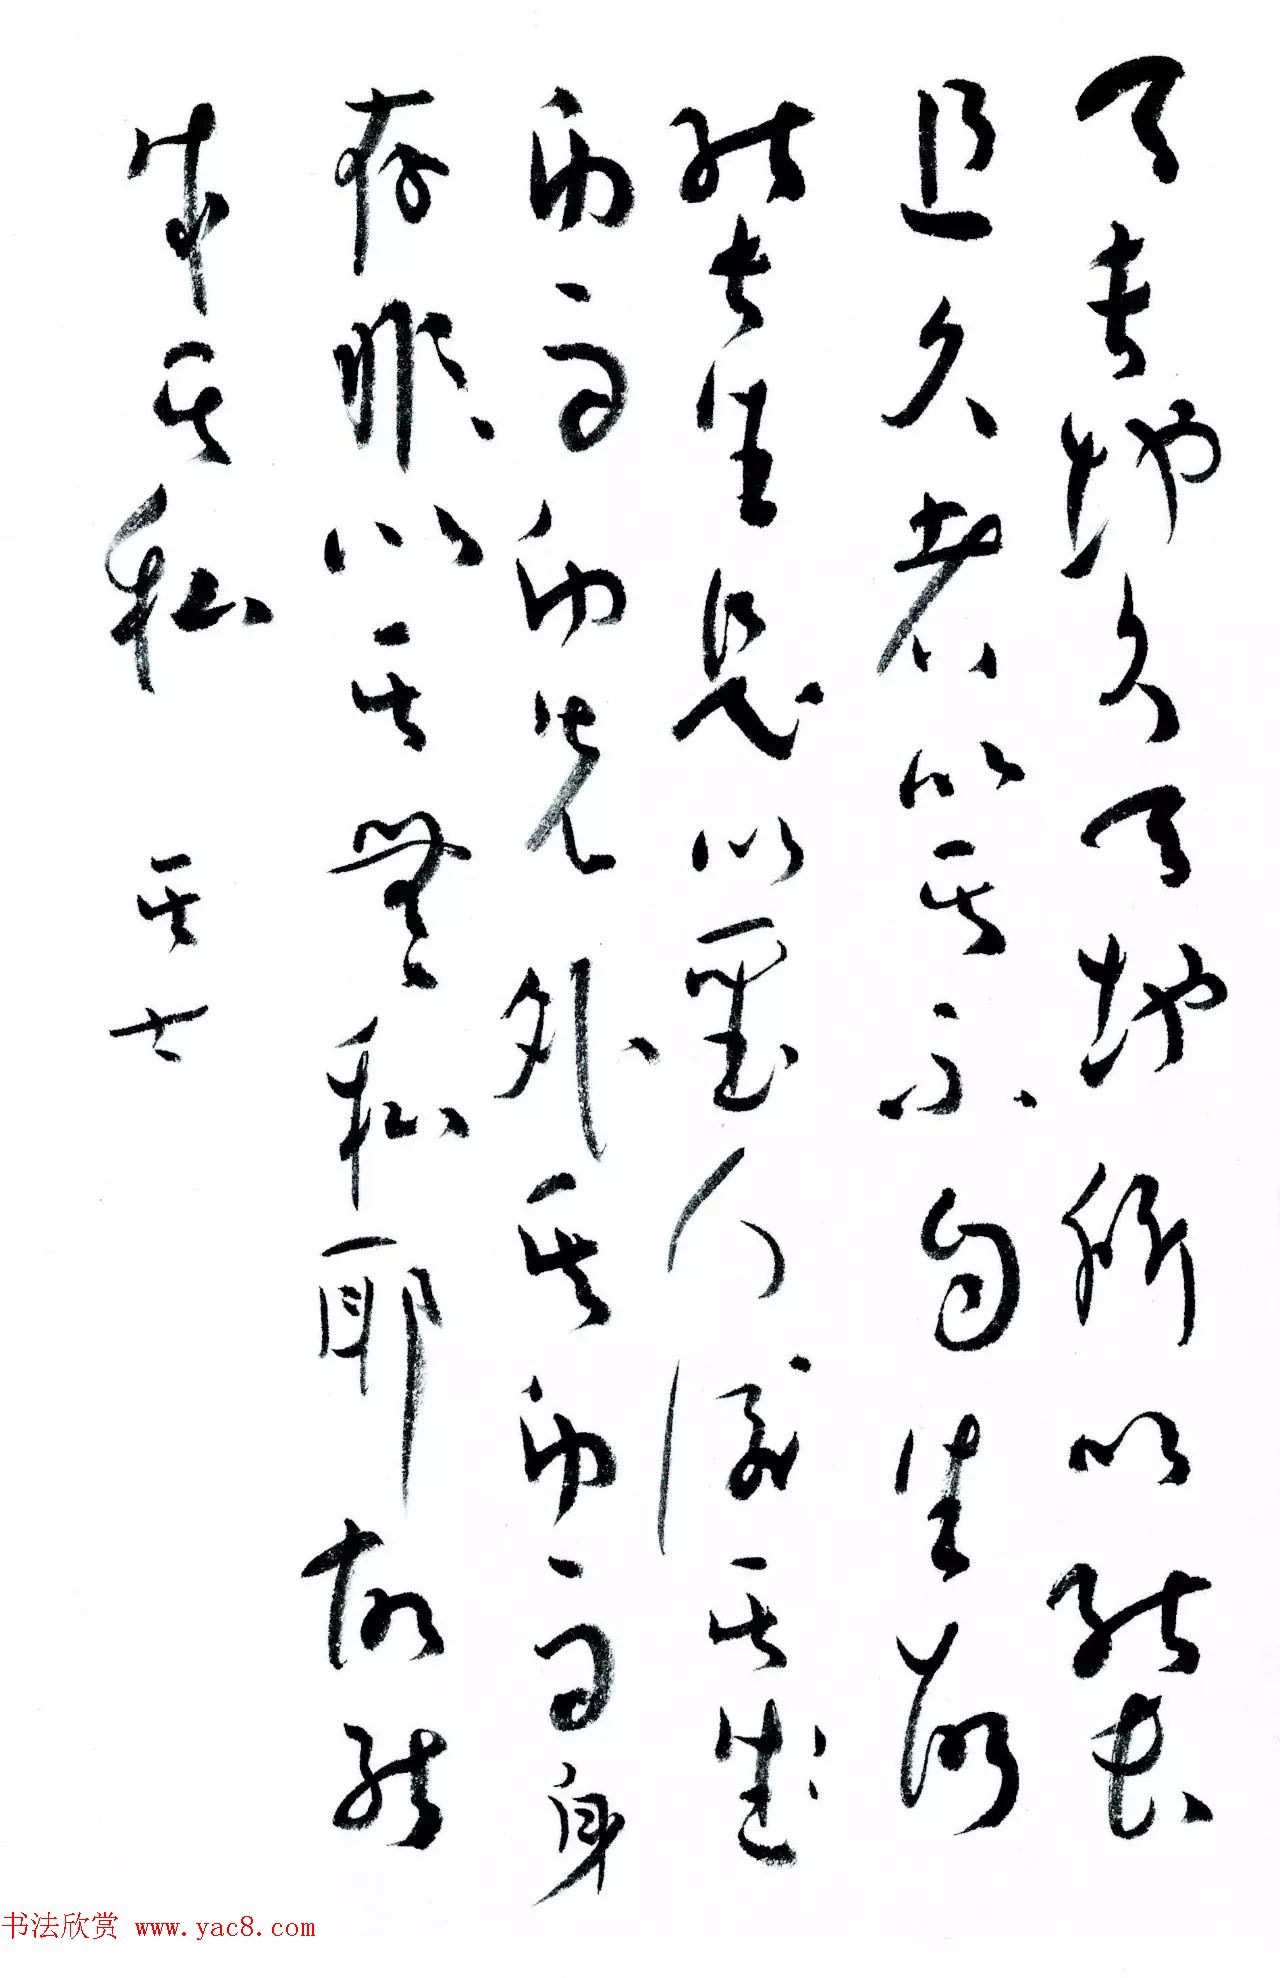 天長地久天地所以能長
且久者以其不自生故
能長生是以聖人後其
身而身先外其身而身
存非以其無私耶故能
成其私 其七
书法欣赏 www.yac8.com